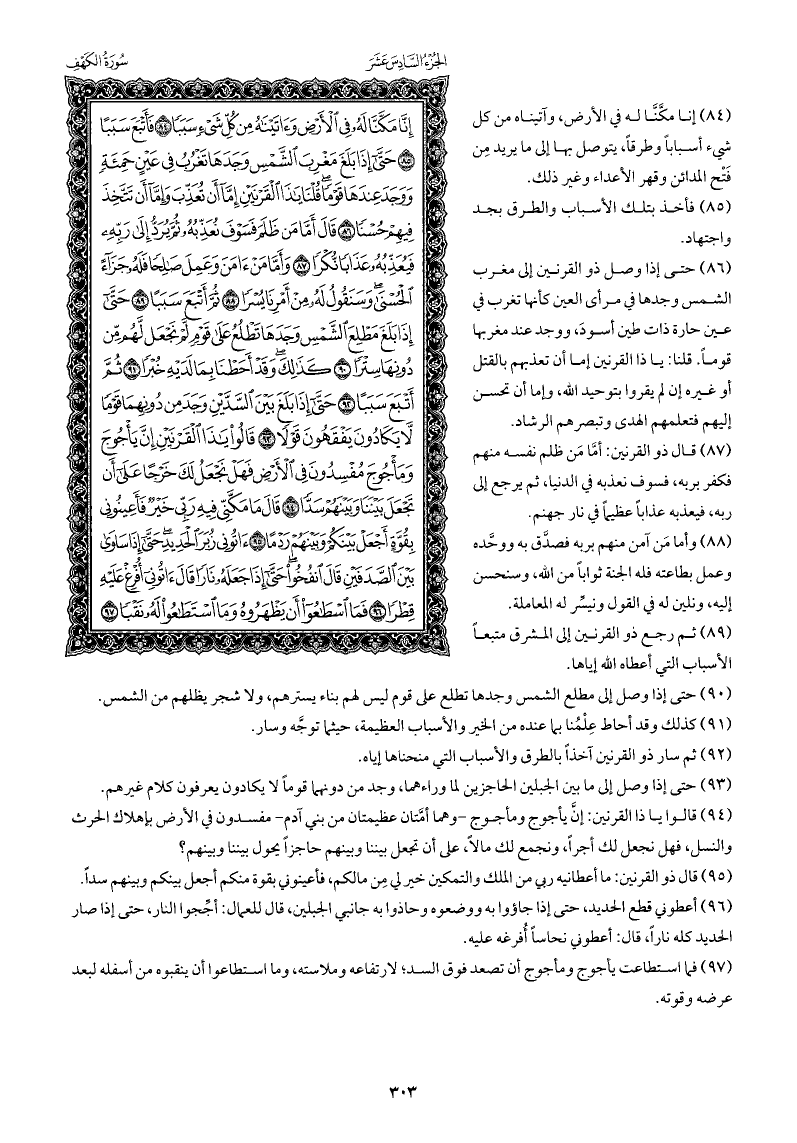 الجزء السادس عشر
سورة الكهف
إِنَّا مَكَّنَّا لَهُۥ فِى ٱلْأَرْضِ وَءَاتَيْنَٰهُ مِن كُلِّ شَىْءٍ سَبَبًا ٨٤ فَأَتْبَعَ سَبَبًا
٨٥ حَتَّىٰٓ إِذَا بَلَغَ مَغْرِبَ ٱلشَّمْسِ وَجَدَهَا تَغْرُبُ فِى عَيْنٍ حَمِئَةٍ
وَوَجَدَ عِندَهَا قَوْمًا ۗ قُلْنَا يَٰذَا ٱلْقَرْنَيْنِ إِمَّآ أَن تُعَذِّبَ وَإِمَّآ أَن تَتَّخِذَ
فِيهِمْ حُسْنًا ٨٦ قَالَ أَمَّا مَن ظَلَمَ فَسَوْفَ نُعَذِّبُهُۥ ثُمَّ يُرَدُّ إِلَىٰ رَبِّهِۦ
فَيُعَذِّبُهُۥ عَذَابًا نُّكْرًا ٨٧ وَأَمَّا مَنْ ءَامَنَ وَعَمِلَ صَٰلِحًا فَلَهُۥ جَزَآءً
ٱلْحُسْنَىٰ ۖ وَسَنَقُولُ لَهُۥ مِنْ أَمْرِنَا يُسْرًا ٨٨ ثُمَّ أَتْبَعَ سَبَبًا ٨٩ حَتَّىٰٓ
إِذَا بَلَغَ مَطْلِعَ ٱلشَّمْسِ وَجَدَهَا تَطْلُعُ عَلَىٰ قَوْمٍ لَّمْ نَجْعَل لَّهُم مِّن
دُونِهَا سِتْرًا ٩٠ كَذَٰلِكَ وَقَدْ أَحَطْنَا بِمَا لَدَيْهِ خُبْرًا ٩١ ثُمَّ
أَتْبَعَ سَبَبًا ٩٢ حَتَّىٰٓ إِذَا بَلَغَ بَيْنَ ٱلسَّدَّيْنِ وَجَدَ مِن دُونِهِمَا قَوْمًا
لَّا يَكَادُونَ يَفْقَهُونَ قَوْلًا ٩٣ قَالُوا۟ يَٰذَا ٱلْقَرْنَيْنِ إِنَّ يَأْجُوجَ
وَمَأْجُوجَ مُفْسِدُونَ فِى ٱلْأَرْضِ فَهَلْ نَجْعَلُ لَكَ خَرْجًا عَلَىٰٓ أَن
تَجْعَلَ بَيْنَنَا وَبَيْنَهُمْ سَدًّا ٩٤ قَالَ مَا مَكَّنِّى فِيهِ رَبِّى خَيْرٌ فَأَعِينُونِى
بِقُوَّةٍ أَجْعَلْ بَيْنَكُمْ وَبَيْنَهُمْ رَدْمًا ٩٥ ءَاتُونِى زُبَرَ ٱلْحَدِيدِ ۖ حَتَّىٰٓ إِذَا سَاوَىٰ
بَيْنَ ٱلصَّدَفَيْنِ قَالَ ٱنفُخُوا۟ ۖ حَتَّىٰٓ إِذَا جَعَلَهُۥ نَارًا قَالَ ءَاتُونِىٓ أُفْرِغْ عَلَيْهِ
قِطْرًا ٩٦ فَمَا ٱسْطَٰعُوٓا۟ أَن يَظْهَرُوهُ وَمَا ٱسْتَطَٰعُوا۟ لَهُۥ نَقْبًا ٩٧
(٨٤) إنا مكَّنَّا له في الأرض، وآتيناه من كل
شيء أسباباً وطرقاً، يتوصل بها إلى ما يريد مِن
فَتْح المدائن وقهر الأعداء وغير ذلك.
(٨٥) فأخذ بتلك الأسباب والطرق بجد
واجتهاد.
(٨٦) حتى إذا وصل ذو القرنين إلى مغرب
الشمس وجدها في مرأى العين كأنها تغرب في
عين حارة ذات طين أسودَ، ووجد عند مغربها
قوماً. قلنا: يا ذا القرنين إما أن تعذبهم بالقتل
أو غيره إن لم يقروا بتوحيد الله، وإما أن تحسن
إليهم فتعلمهم الهدى وتبصرهم الرشاد.
(٨٧) قال ذو القرنين: أمَّا مَن ظلم نفسه منهم
فكفر بربه، فسوف نعذبه في الدنيا، ثم يرجع إلى
ربه، فيعذبه عذاباً عظيماً في نار جهنم.
(٨٨) وأما مَن آمن منهم بربه فصدَّق به ووحَّده
وعمل بطاعته فله الجنة ثواباً من الله، وسنحسن
إليه، ونلين له في القول ونيسِّر له المعاملة.
(٨٩) ثم رجع ذو القرنين إلى المشرق متبعاً
الأسباب التي أعطاه الله إياها.
(٩٠) حتى إذا وصل إلى مطلع الشمس وجدها تطلع على قوم ليس لهم بناء يسترهم، ولا شجر يظلهم من الشمس.
(٩١) كذلك وقد أحاط عِلْمُنا بما عنده من الخير والأسباب العظيمة، حيثما توجَّه وسار.
(٩٢) ثم سار ذو القرنين آخذاً بالطرق والأسباب التي منحناها إياه.
(٩٣) حتى إذا وصل إلى ما بين الجبلين الحاجزين لما وراءهما، وجد من دونهما قوماً لا يكادون يعرفون كلام غيرهم.
(٩٤) قالوا يا ذا القرنين: إنَّ يأجوج ومأجوج -وهما أمَّتان عظيمتان من بني آدم- مفسدون في الأرض بإهلاك الحرث
والنسل، فهل نجعل لك أجراً، ونجمع لك مالاً، على أن تجعل بيننا وبينهم حاجزاً يحول بيننا وبينهم؟
(٩٥) قال ذو القرنين: ما أعطانيه ربي من الملك والتمكين خير لي مِن مالكم، فأعينوني بقوة منكم أجعل بينكم وبينهم سداً.
(٩٦) أعطوني قطع الحديد، حتى إذا جاؤوا به ووضعوه وحاذوا به جانبي الجبلين، قال للعمال: أجِّجوا النار، حتى إذا صار
الحديد كله ناراً، قال: أعطوني نحاساً أُفرغه عليه.
(٩٧) فما استطاعت يأجوج ومأجوج أن تصعد فوق السد؛ لارتفاعه وملاسته، وما استطاعوا أن ينقبوه من أسفله لبعد
عرضه وقوته.
٣٠٣